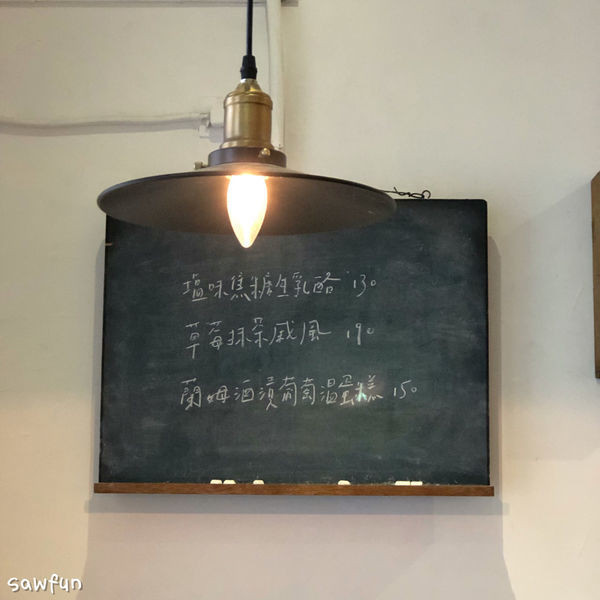 塩味焦糖生乳酪 130
草莓抹茶戚風 190
蘭姆酒漬葡萄溫蛋糕 150
sawfun